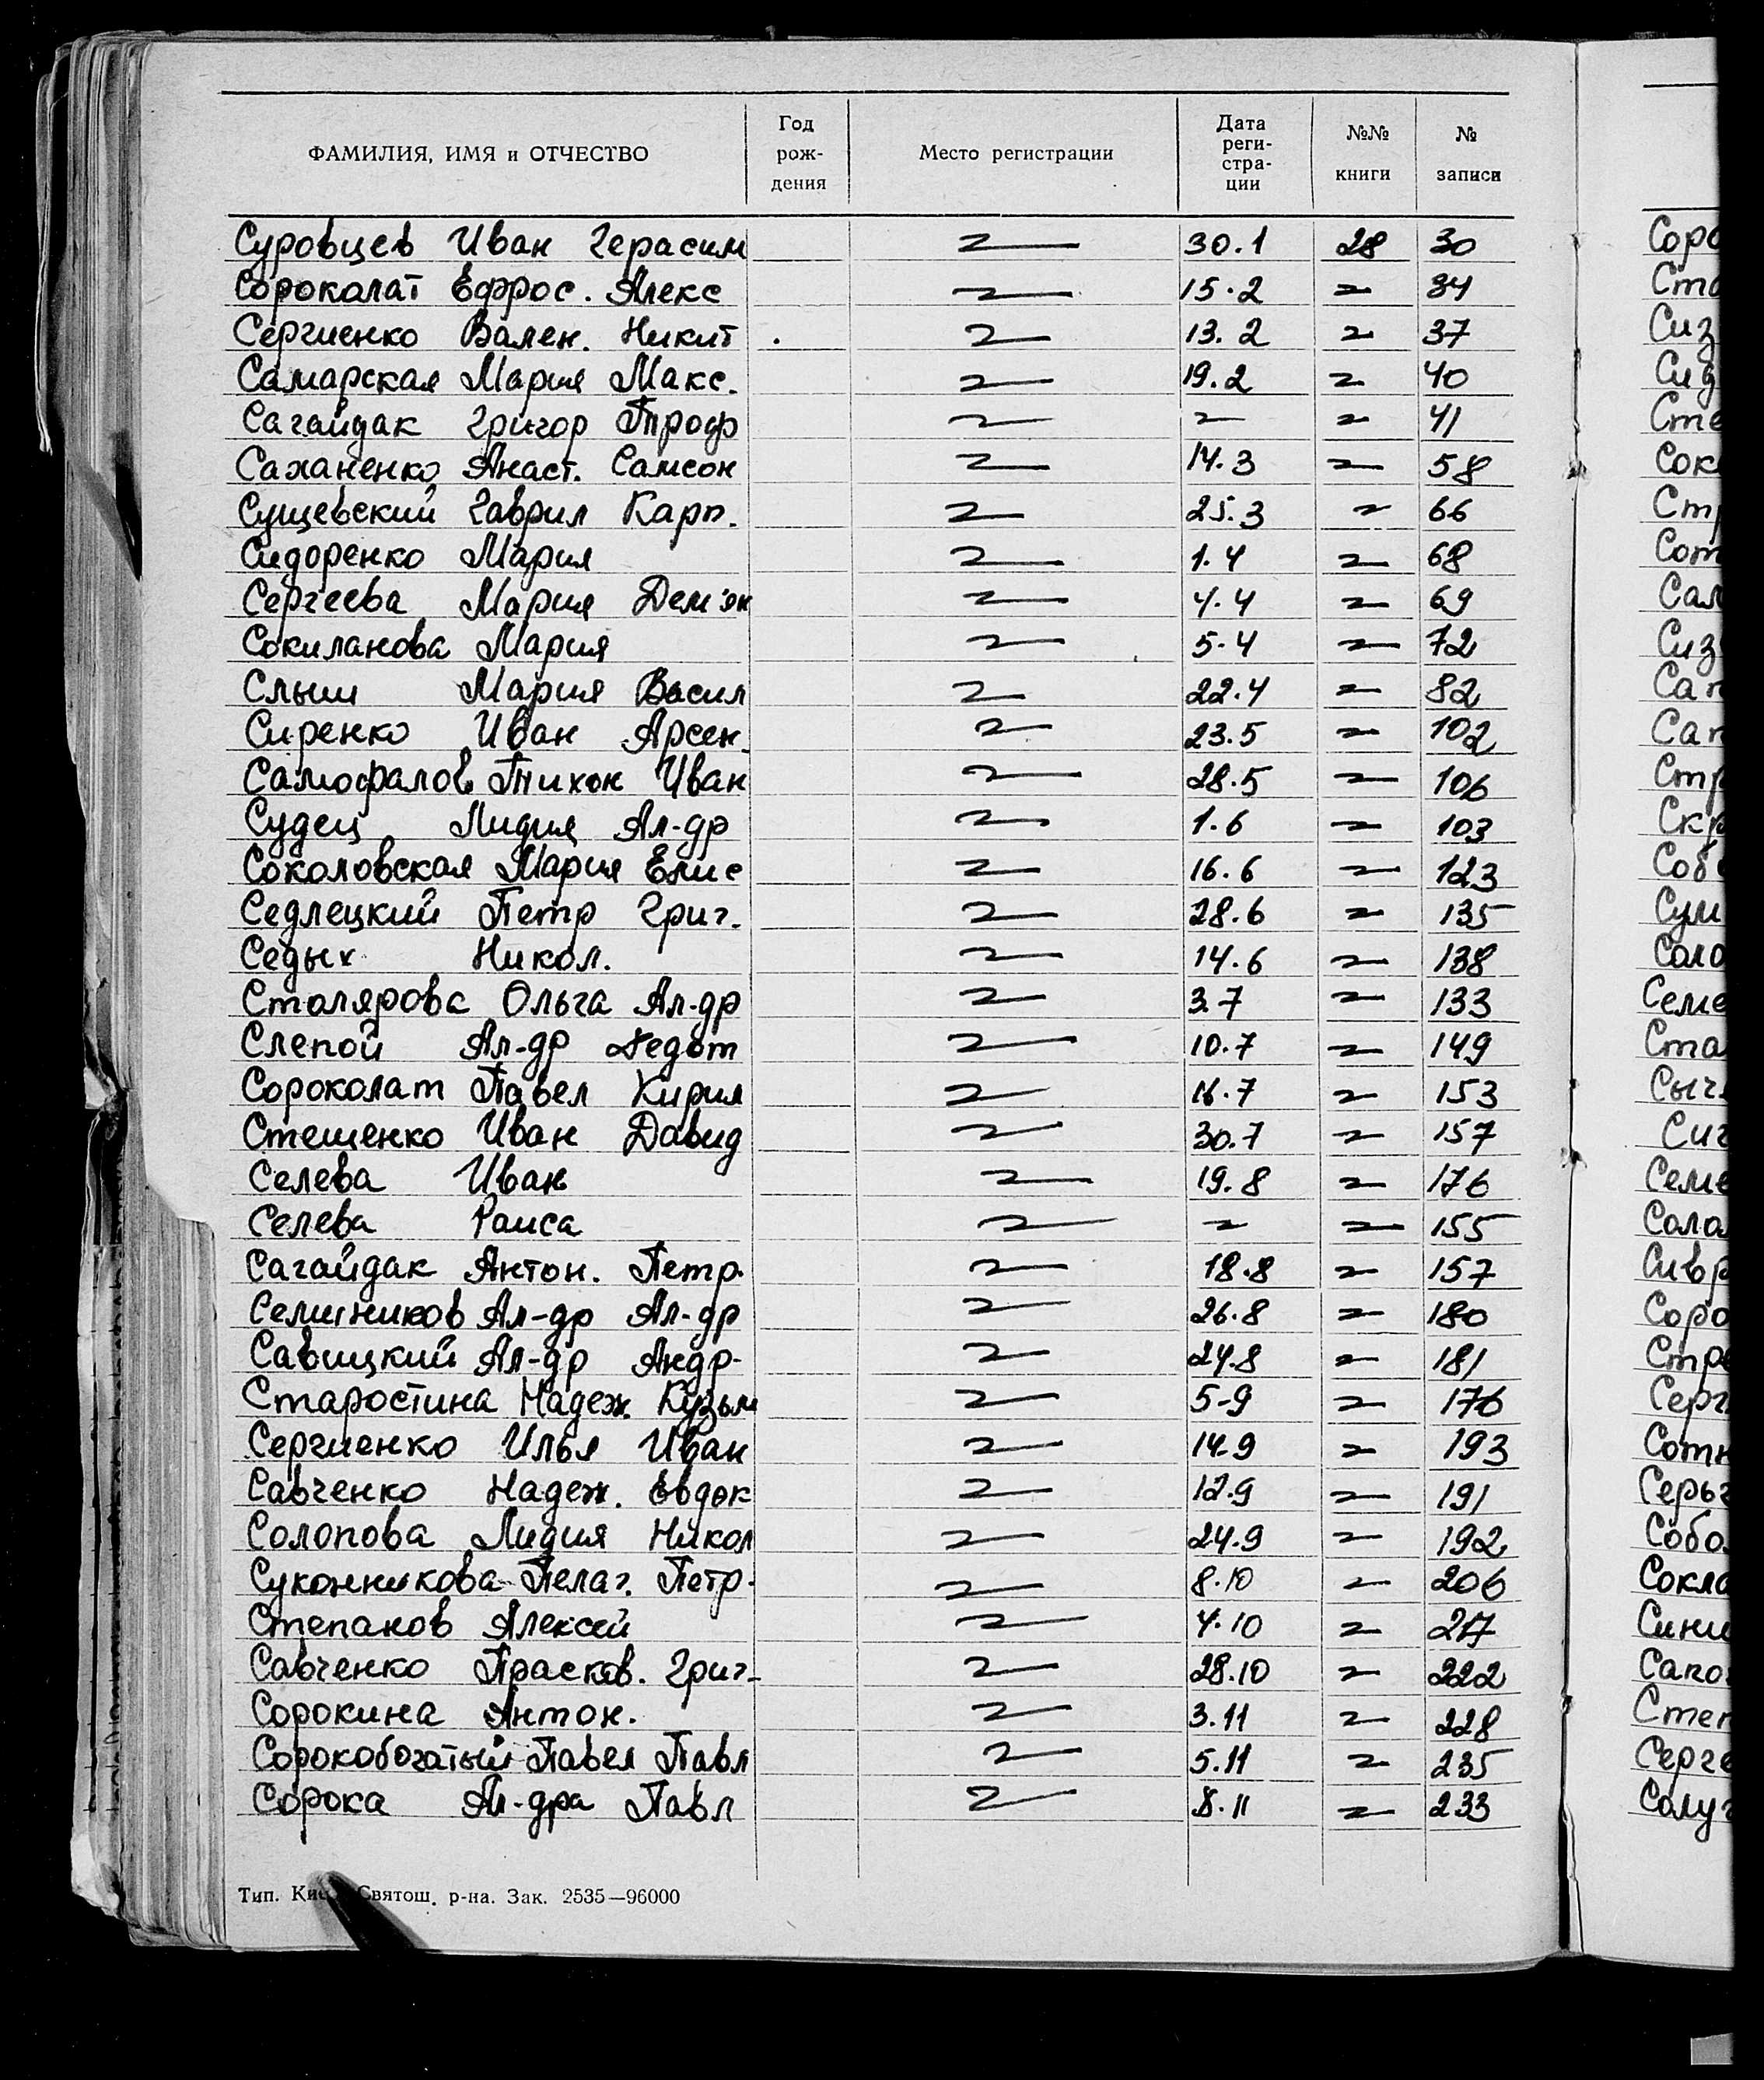 ФАМИЛИЯ, ИМЯ и ОТЧЕСТВО Год рождения Место регистрации Дата регистрации №№ книги № записи
Суровцев Иван Герасим 30.1 28 30
Сороколат Ефрос. Алекс 15.2 34
Сергиенко Вален. Никит 13.2 37
Самарская Мария Макс. 19.2 40
Сагайдак Григор Троф 41
Саханенко Анаст. Самсон 14.3 58
Сущевский Гаврил Карп. 25.3 66
Сидоренко Мария 1.4 68
Сергеева Мария Дем'ян 4.4 69
Сокиланова Мария 5.4 72
Слыш Мария Васил 22.4 82
Сиренко Иван Арсен. 23.5 102
Самофалов Тихон Иван 28.5 106
Судец Лидия Ал-др 1.6 103
Соколовская Мария Елис 16.6 123
Седлецкий Петр Григ. 28.6 135
Седых Никол. 14.6 138
Столярова Ольга Ал-др 3.7 133
Слепой Ал-др Федот 10.7 149
Сороколат Павел Кирил 16.7 153
Стешенко Иван Давид 30.7 157
Селева Иван 19.8 176
Селева Раиса 155
Сагайдак Антон. Петр. 18.8 157
Семиников Ал-др Ал-др 26.8 180
Савицкий Ал-др Андр. 24.8 181
Старостина Надеж. Кузьм 5-9 176
Сергиенко Илья Иван 14.9 193
Савченко Надеж. Евдок 12.9 191
Солопова Лидия Никол 24.9 192
Суконникова Пелаг. Петр. 8.10 206
Степанов Алексей 4.10 217
Савченко Prасков. Григ. 28.10 222
Сорокина Антон. 3.11 228
Сорокобогатый Павел Павл 5.11 235
Сорока Ал-дра Павл 8.11 233
Тип. Святош. р-на. Зак. 2535—96000